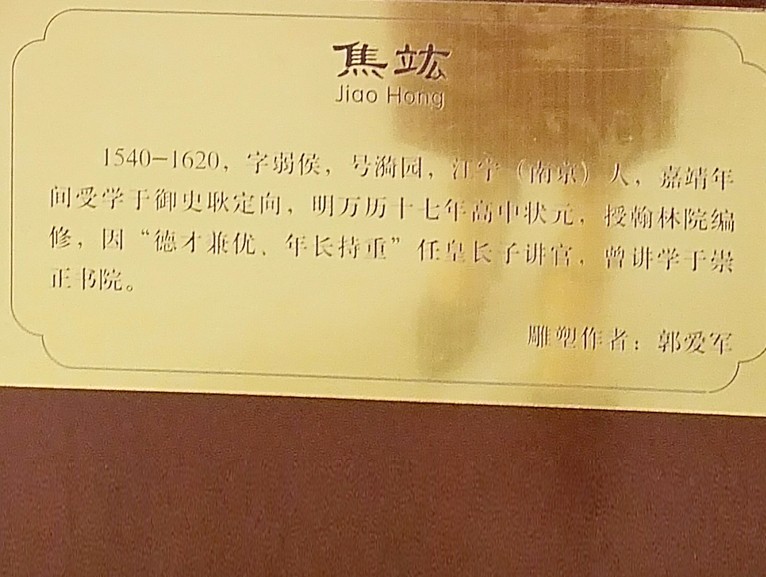 焦竑
Jiao Hong
1540-1620，字弱侯，号漪园，江宁（南京）人，嘉靖年
间受学于御史耿定向，明万历十七年高中状元，授翰林院编
修，因“德才兼优、年长持重”任皇长子讲官，曾讲学于崇
正书院。
雕塑作者：郭爱军